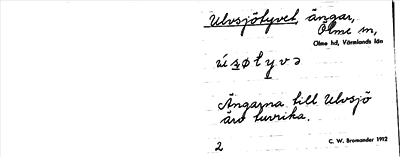 Ulvsjötyvet, ängar,
Ölme sn,
Ölme hd, Värmlands län
Ängarna till Ulvsjö
äro tuvrika.
2
C. W. Bromander 1912